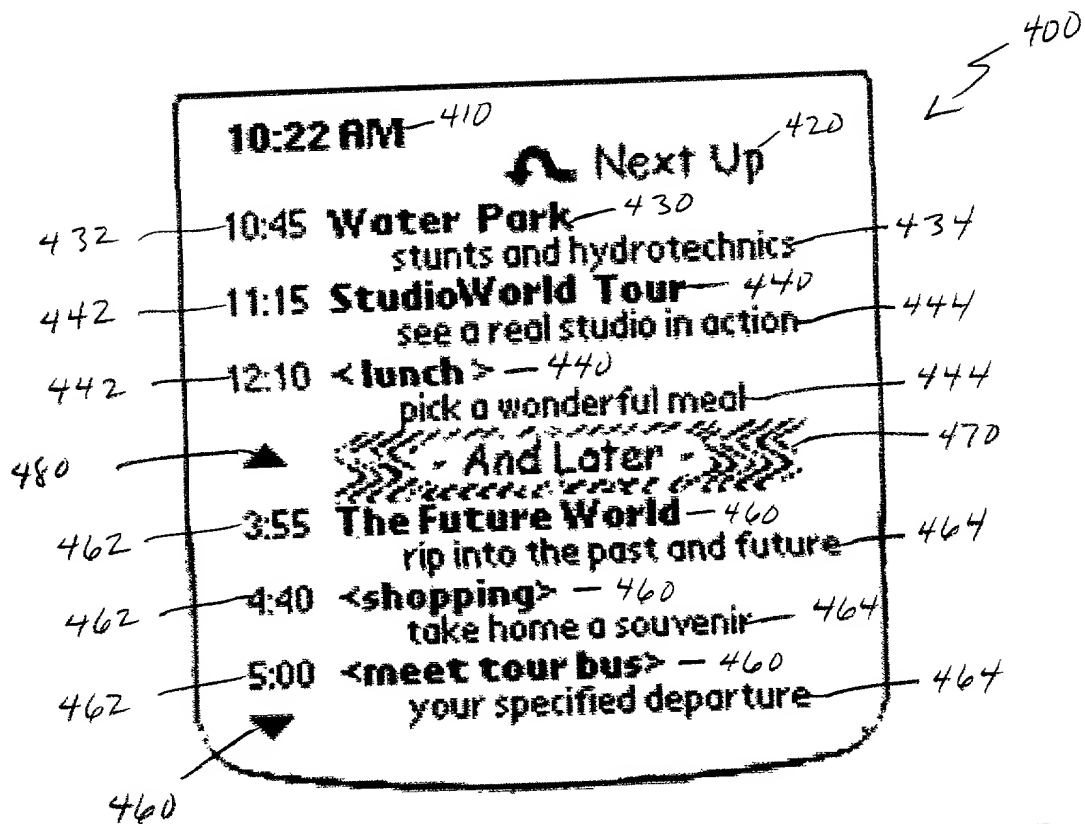 400
10:22 AM 410
Next Up 420
432 10:45 Water Park 430
stunts and hydrotechnics 434
442 11:15 StudioWorld Tour 440
see a real studio in action 444
442 12:10 <lunch> 440
pick a wonderful meal 444
480 - And Later - 470
462 3:55 The Future World 460
rip into the past and future 464
462 4:40 <shopping> 460
take home a souvenir 464
462 5:00 <meet tour bus> 460
your specified departure 464
460